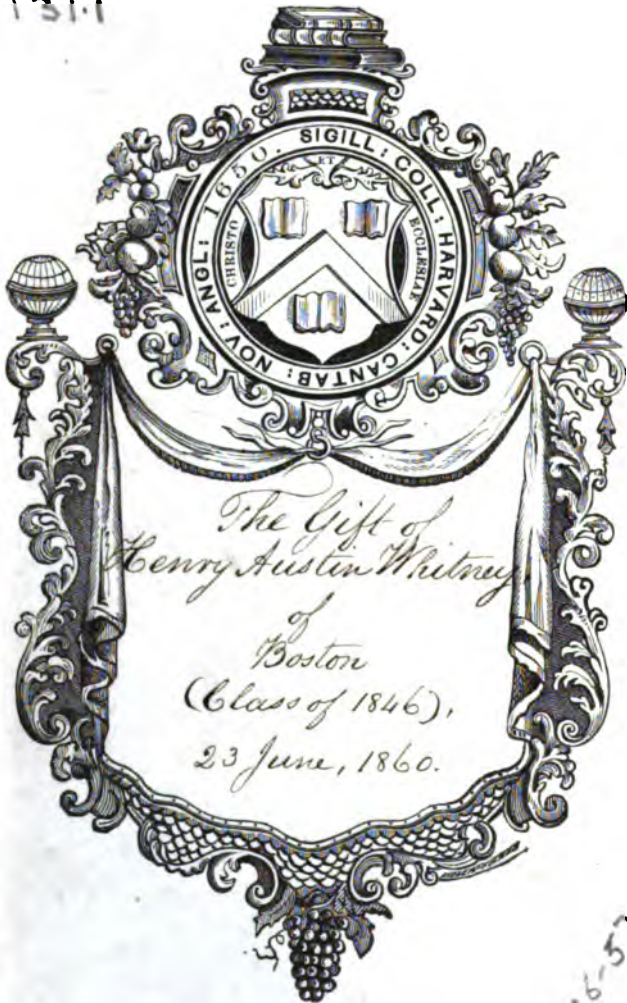 SIGILL: COLL: HARVARD: CANTAB: NOV: ANGL: 1650.
CHRISTO
ET
ECCLESIAE
The Gift of
Henry Austin Whitney
of
Boston
(Class of 1846),
23 June, 1860.